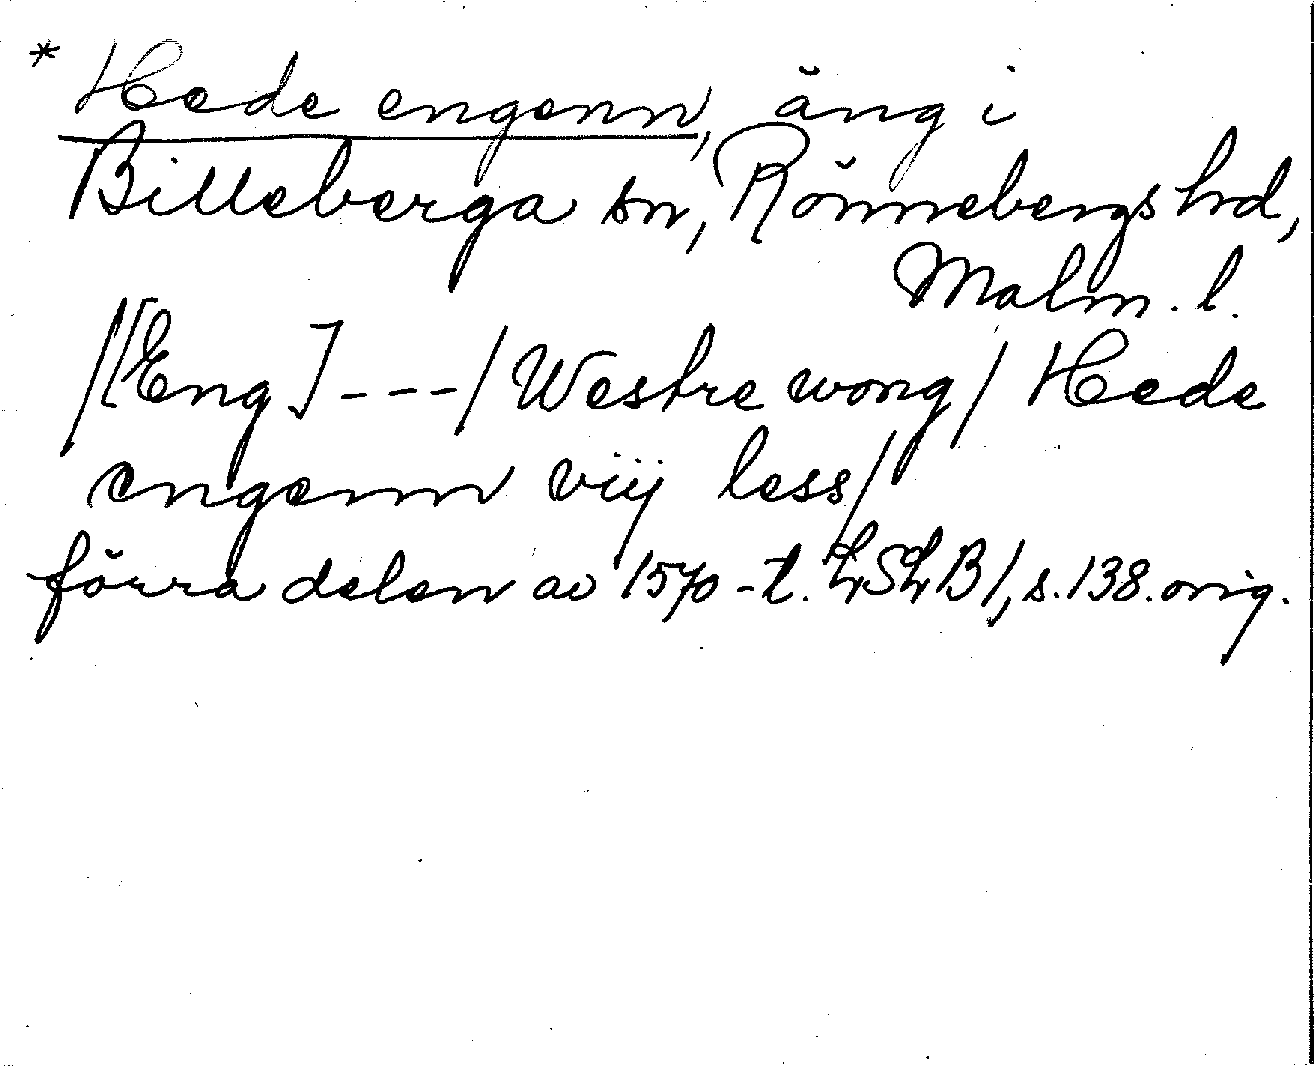 * Hede engenn, äng i
Billeberga sn, Rönnebergs hd,
Malm. l.
/[Eng] --- / Westre wong / Hede
engenn viij less/
förra delen av 1570-t. LSLB/, s. 138. orig.